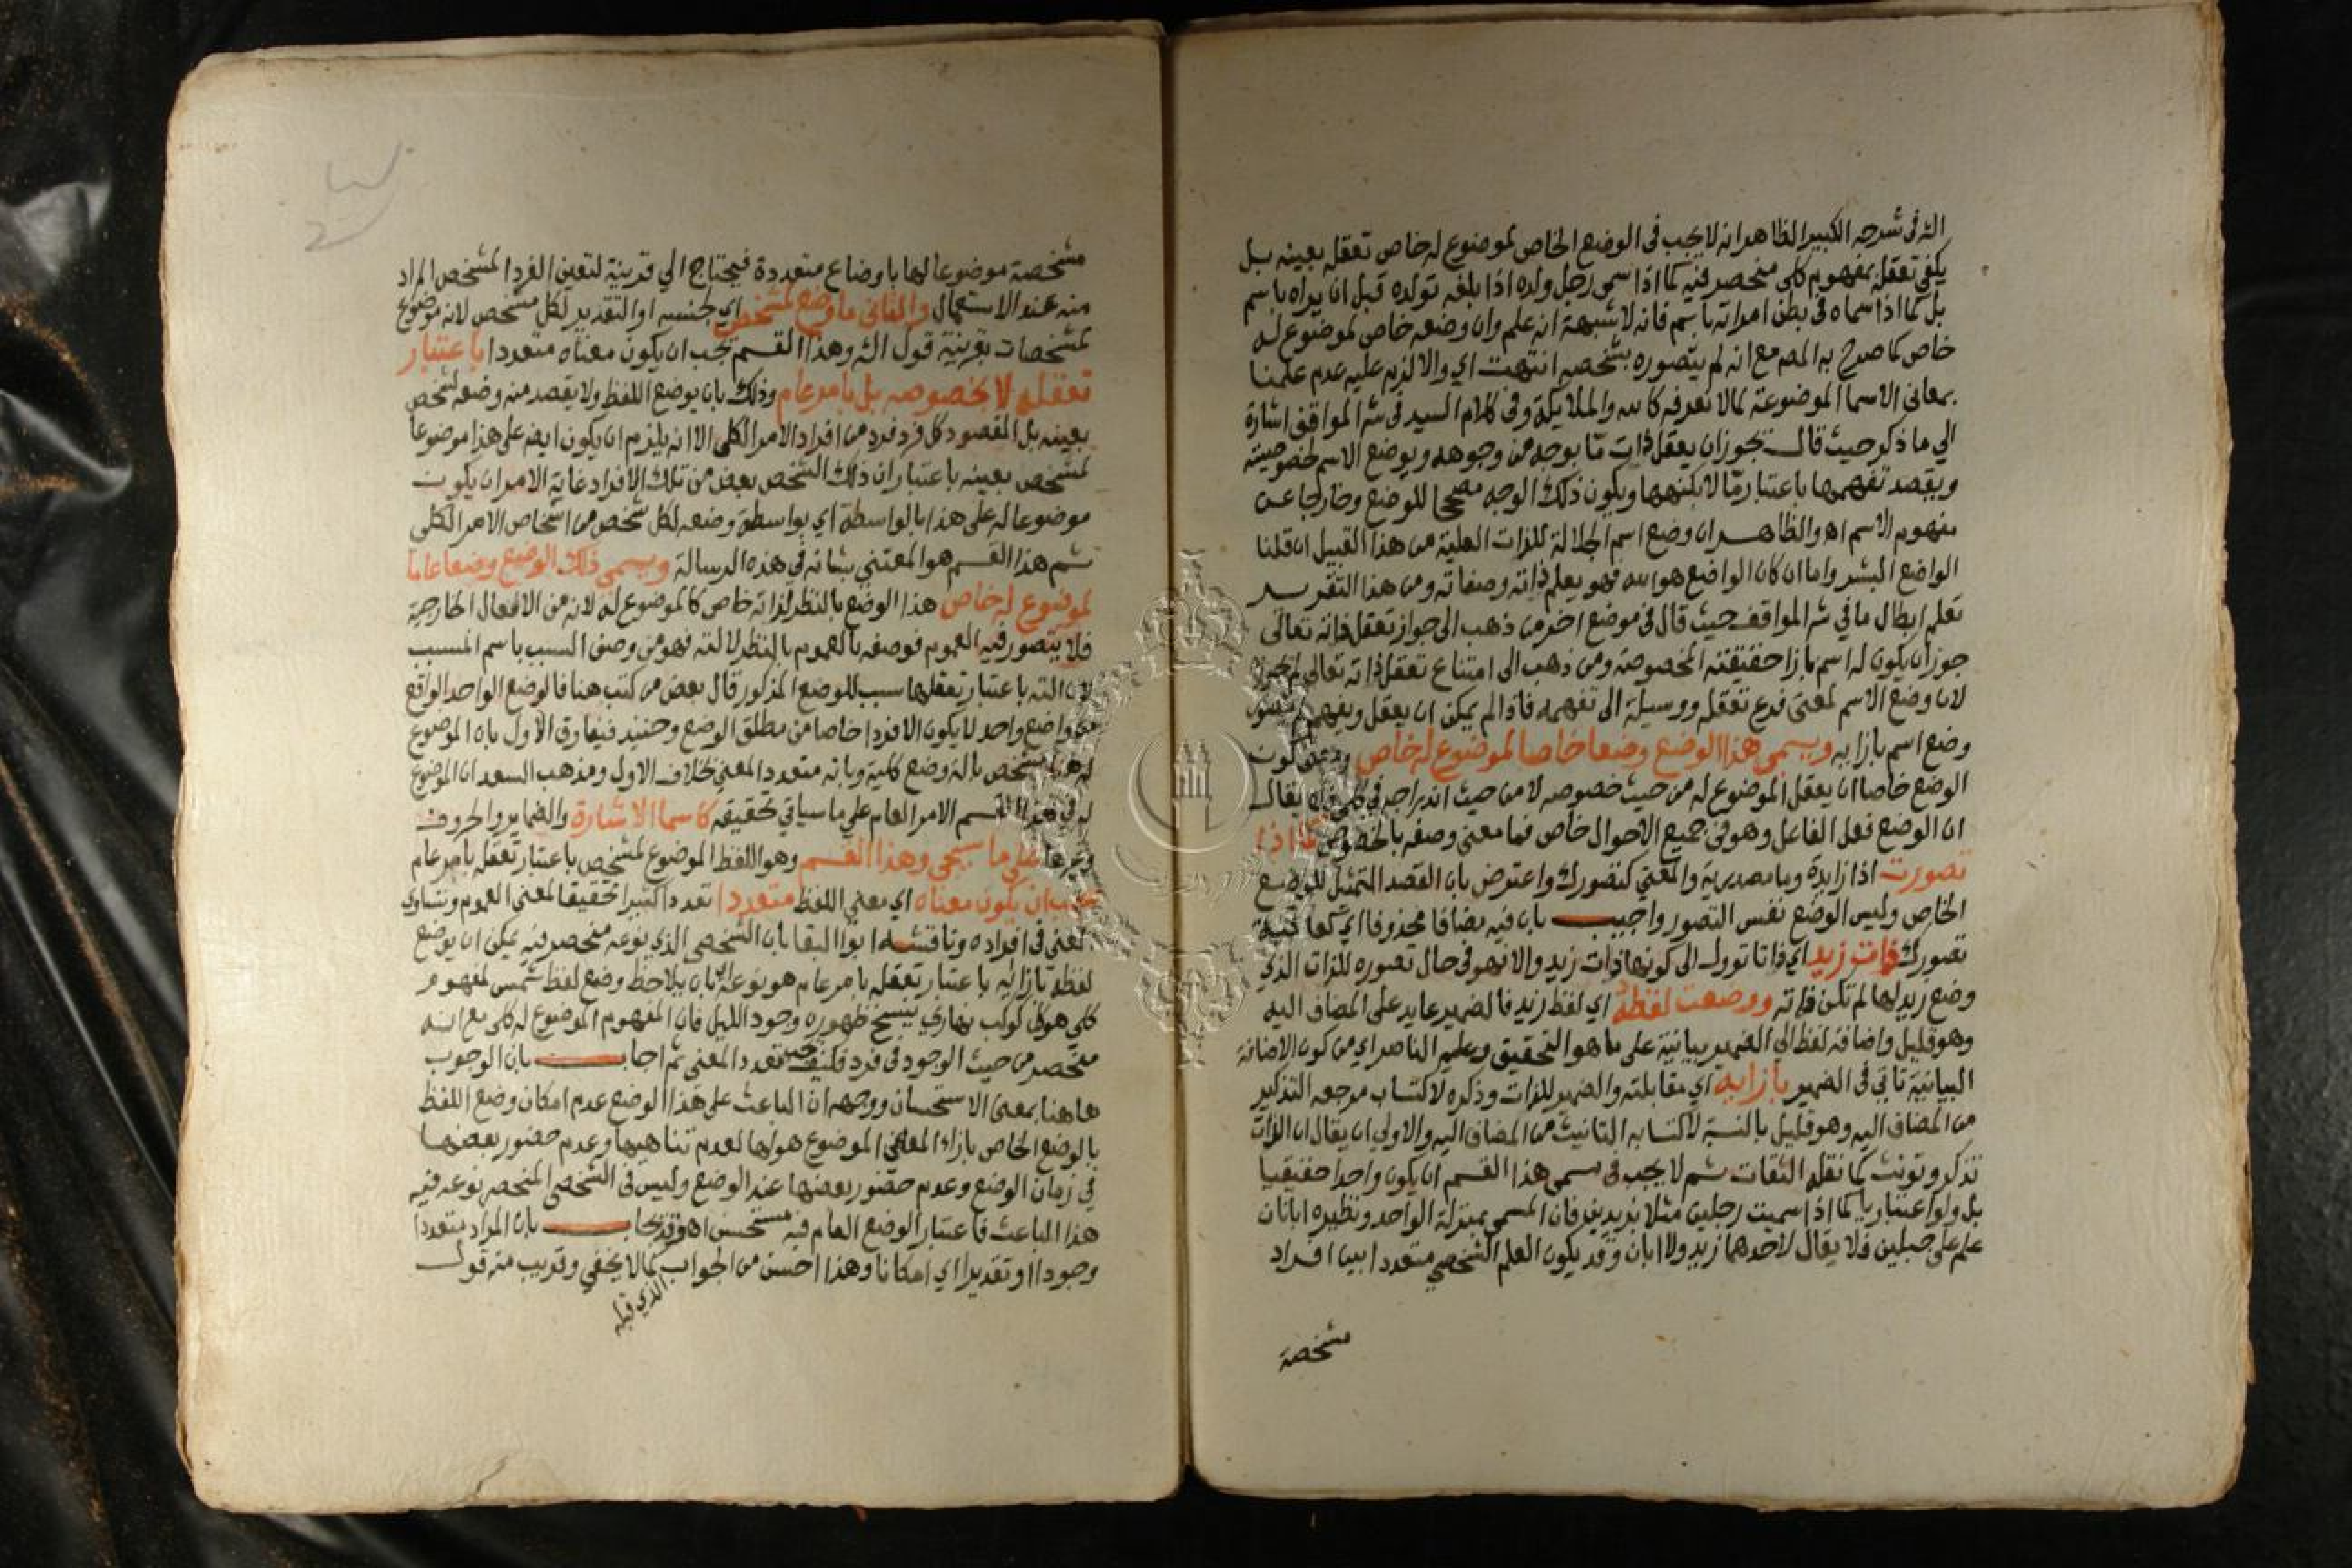 الشه في شرحه الكبير الظاهر انه لا يجب في الوضع الخاص لموضوع له خاص تعقله بعينه بل
يكفي تعقله بمفهوم كلي منحصر فيه كما اذا سمى رجل ولده اذا بلغه تولده قبل ان يراه باسم
بل كما اذا سماه في بطن امراته باسم فانه لا شبهة انه علم وان وضعه خاص لموضوع له
خاص كما صرح به المص مع انه لم يتصوره بشخصه انتهت اي والا لزم عليه عدم علمنا
بمعاني الاسما الموضوعة لما لا نعرفه كالله والملايكة وفي كلام السيد في شر المواقف اشارة
الي ما ذكر حيث قال يجوز ان يعقل ذات ما بوجه من وجوهه ويوضع الاسم لخصوصيته
ويقصد تفهيمها باعتبار ما لا بكنهها ويكون ذلك الوجه مصححا للوضع وخارجا عن
مفهوم الاسم اه والظاهر ان وضع اسم الجلالة للذات العلية من هذا القبيل ان قلنا
الواضع البشر واما ان كان الواضع هو الله فهو يعلم ذاته وصفاته ومن هذا التقرير
تعلم ابطال ما في شر المواقف حيث قال في موضع اخر من ذهب الى جواز تعقل ذاته تعالى
جوز ان يكون له اسم بازا حقيقته المخصوصة ومن ذهب الى امتناع تعقل ذاته تعالى لم يجوزه
لان وضع الاسم لمعنى فرع تعقله ووسيلة الى تفهيمه فاذا لم يمكن ان يعقل ويفهم لم يتصور
وضع اسم بازايه ويسمى هذا الوضع وضعا خاصا لموضوع له خاص ومعنى كون
الوضع خاصا ان يعقل الموضوع له من حيث خصوصه لا من حيث اندراجه في كلي يقال
ان الوضع فعل الفاعل وهو في جميع الاحوال خاص فما معنى وصفه بالخصوص كما اذا
تصورت اذا زايدة وما مصدرية والمعنى كتصورك واعترض بان القصد التمثيل للوضع
الخاص وليس الوضع نفس التصور واجيب بان فيه مضافا محذوفا اي
تصورك ذات زيد اي ذاتا توول الى كونها ذات زيد والا فهو في حال تصوره للذات الذي
وضع زيد لها لم تكن ذاته ووضعت لفظه اي لفظ زيد فالضمير عايد على المضاف اليه
وهو قليل واضافة لفظ الى الضمير بيانية على ما هو التحقيق وعليه الناصر اي من كون الاضافة
البيانية تاتي في الضمير بازايه اي مقابلته والضمير للذات وذكره لاكتساب مرجعه التذكير
من المضاف اليه وهو قليل بالنسبة لاكتسابه التانيث من المضاف اليه والاولى ان يقال ان الذات
تذكر وتونث كما نقله الثقات ثم لا يجب في مسمى هذا القسم ان يكون واحدا حقيقيا
بل ولو اعتباريا كما اذا سميت رجلين مثلا بزيد فان المسمى بمنزلة الواحد ونظيره ابانان
علم على جبلين فلا يقال لاحدهما زيد ولا ابان وقد يكون العلم الشخصي متعددا بين افراد
مشخصة
مشخصة موضوعا لها باوضاع متعددة فيحتاج الي قرينة لتعين الفرد المشخص المراد
منه عند الاستعمال والثاني ما وضع لمشخص اي لجنسه او التقدير لكل مشخص لانه موضوع
لمشخصات بقرينة قول الشه وهذا القسم يجب ان يكون معناه متعددا باعتبار
تعقله لا بخصوصه بل بامر عام وذلك بان يوضع اللفظ ولا يقصد منه وضعه لشخص
بعينه بل المقصود كل فرد فرد من افراد الامر الكلي الا انه يلزم ان يكون ايضا على هذا موضوعا
لمشخص بعينه باعتبار ان ذلك الشخص بعض من تلك الافراد غاية الامر ان يكون
موضوعا له على هذا بالواسطة اي بواسطة وضعه لكل شخص من اشخاص الامر الكلي
ثم هذا القسم هو المعتني بشانه في هذه الرسالة ويسمى ذلك الوضع وضعا عاما
لموضوع له خاص هذا الوضع بالنظر لذاته خاص كالموضوع له لانه من الافعال الخارجية
فلا يتصور فيه العموم فوصفه بالعموم بالنظر لالته فهو من وصف السبب باسم المسبب
لان الته باعتبار تعقلها سبب للوضع المذكور قال بعض من كتب هنا فالوضع الواحد الواقع
من واضع واحد لا يكون الا فردا خاصا من مطلق الوضع وحينيذ فيفارق الاول بان الموضوع
له هنا مشخص بالة وضع كلية وبانه متعدد المعنى بخلاف الاول ومذهب السعد ان الموضوع
له في هذا القسم الامر العام على ما سياتي تحقيقه كاسما الاشارة والضماير والحروف
وغيرها على ما سيجي وهذا القسم وهو اللفظ الموضوع لمشخص باعتبار تعقله بامر عام
يجب ان يكون معناه اي معنى اللفظ متعددا تعددا كثيرا تحقيقا لمعنى العموم وتساوي
المعنى في افراده وناقشه ابو البقا بان الشخصي الذي نوعه منحصر فيه يمكن ان يوضع
لفظه بازايه باعتبار تعقله بامر عام هو نوعه بان يلاحظ وضع لفظ شمس لمفهوم
كلي هو كل كوكب نهاري ينسخ ظهوره وجود الليل فان المفهوم الموضوع له كلي مع انه
منحصر من حيث الوجود في فرد فكيف يجب تعدد المعنى ثم اجاب بان الوجوب
هاهنا بمعنى الاستحسان ووجهه ان الباعث على هذا الوضع عدم امكان وضع اللفظ
بالوضع الخاص بازا المعاني الموضوع هو لها لعدم تناهيها وعدم حضور بعضها
في زمان الوضع وعدم حضور بعضها عند الوضع وليس في الشخصي المنحصر نوعه فيه
هذا الباعث فاعتبار الوضع العام فيه مستحسن اه وقد يجاب بان المراد متعددا
وجودا او تقديرا اي امكانا وهذا احسن من الجواب كما لا يخفي وقريب منه قول
الذي قبله